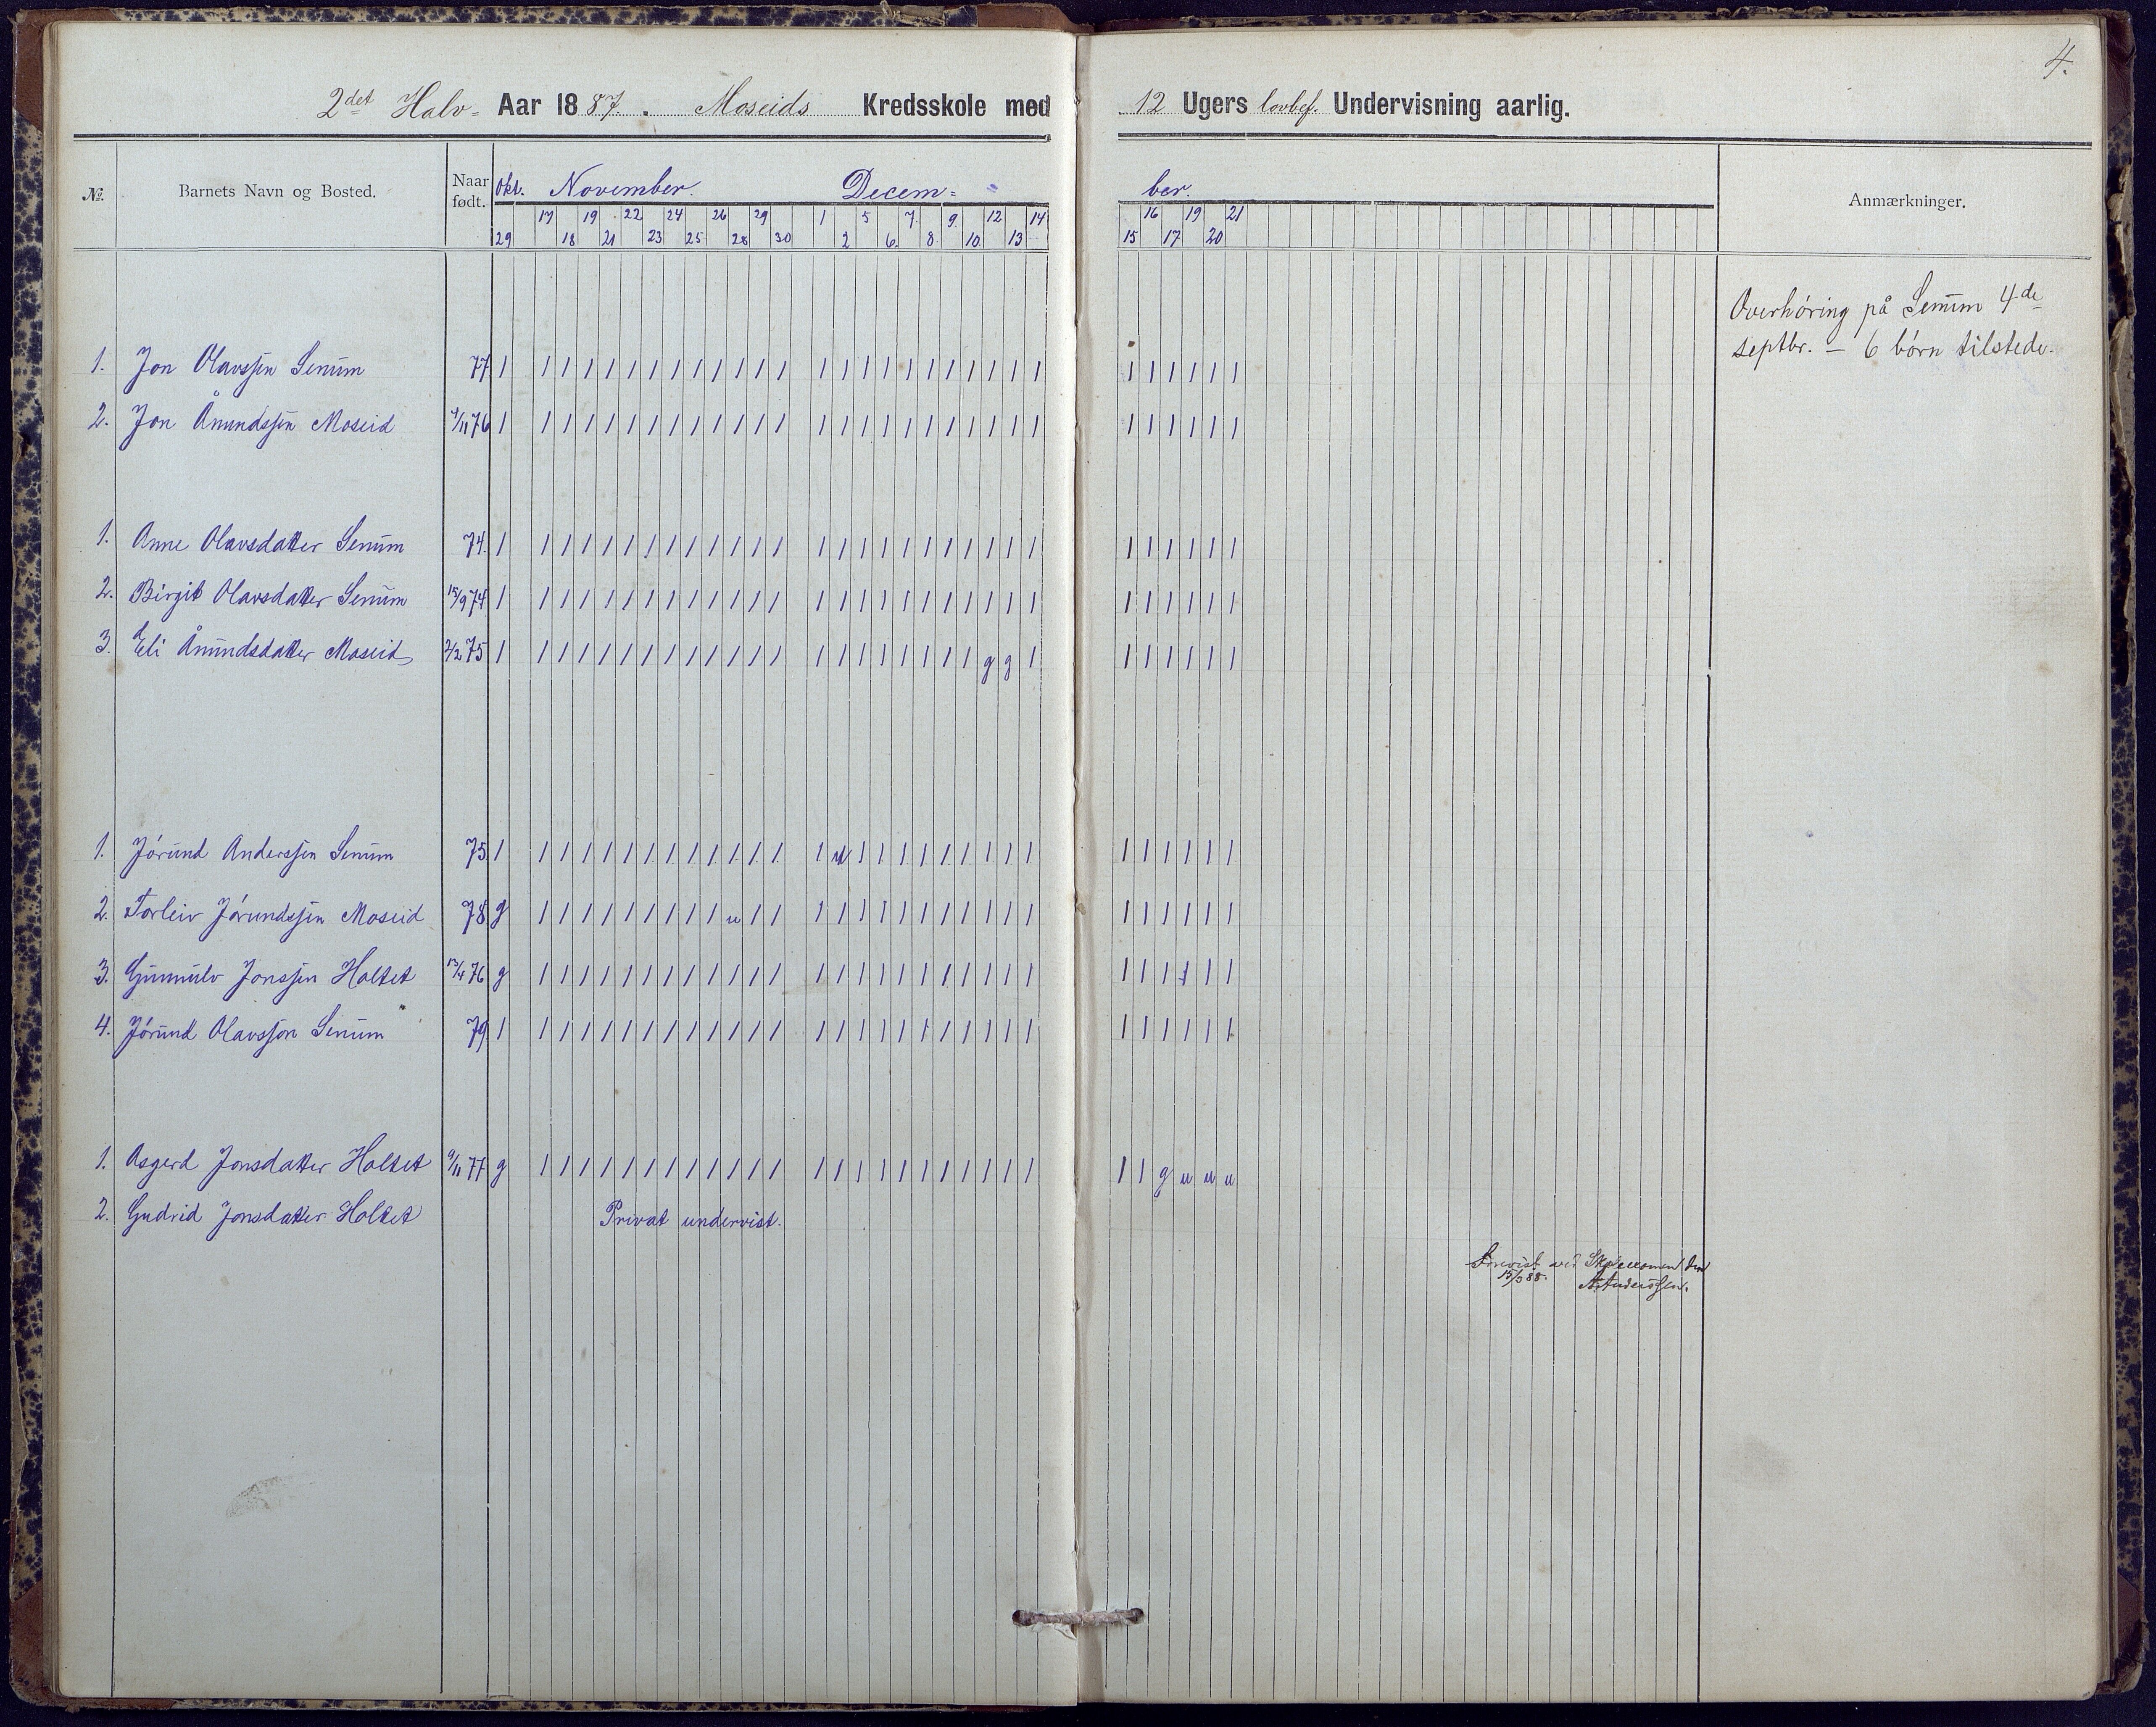 4.
2det Halv- Aar 1887. Moseids Kredsskole med 12 Ugers lovbef. Undervisning aarlig.
No. Barnets Navn og Bosted. Naar født. Okt. November. Decem- ber. Anmærkninger.
17 19 22 24 26 29 1 5 7. 9. 12 14 16 19 21
29 18 21 23 25 28 30 2 6. 8. 10 13 15 17 20
Overhöring på Senum 4de
septbr. — 6 börn tilstede.
1. Jon Olavssen Senum 77 1 1 1 1 1 1 1 1 1 1 1 1 1 1 1 1 1 1 1 1 1 1 1 1 1 1 1 1 1 1
2. Jon Ånundssen Moseid 4/11 76 1 1 1 1 1 1 1 1 1 1 1 1 1 1 1 1 1 1 1 1 1 1 1 1 1 1 1 1 1 1
1. Anne Olavsdatter Senum 74. 1 1 1 1 1 1 1 1 1 1 1 1 1 1 1 1 1 1 1 1 1 1 1 1 1 1 1 1 1 1
2. Birgit Olavsdatter Senum 15/9 74 1 1 1 1 1 1 1 1 1 1 1 1 1 1 1 1 1 1 1 1 1 1 1 1 1 1 1 1 1 1
3. Eli Ånundsdatter Moseid 2/2 75 1 1 1 1 1 1 1 1 1 1 1 1 1 1 1 1 1 1 1 1 1 g g 1 1 1 1 1 1 1
1. Jörund Anderssen Senum 75 1 1 1 1 1 1 1 1 1 1 1 1 1 1 u 1 1 1 1 1 1 1 1 1 1 1 1 1 1 1
2. Torleiv Jörundssen Moseid 78 g 1 1 1 1 1 1 1 1 1 u 1 1 1 1 1 1 1 1 1 1 1 1 1 1 1 1 1 1 1 1
3. Gunnulv Jonssen Holtet 13/4 76 g 1 1 1 1 1 1 1 1 1 1 1 1 1 1 1 1 1 1 1 1 1 1 1 1 1 1 1 1 1 1
4. Jörund Olavsson Senum 79 1 1 1 1 1 1 1 1 1 1 1 1 1 1 1 1 1 1 1 1 1 1 1 1 1 1 1 1 1 1
1. Asgerd Jonsdatter Holtet 9/11 77 g 1 1 1 1 1 1 1 1 1 1 1 1 1 1 1 1 1 1 1 1 1 1 1 1 1 g u u u
2. Gudrid Jonsdatter Holtet Privat undervist.
Forevist ved Skoleexamen den
15/3 88. A. Anderssen.